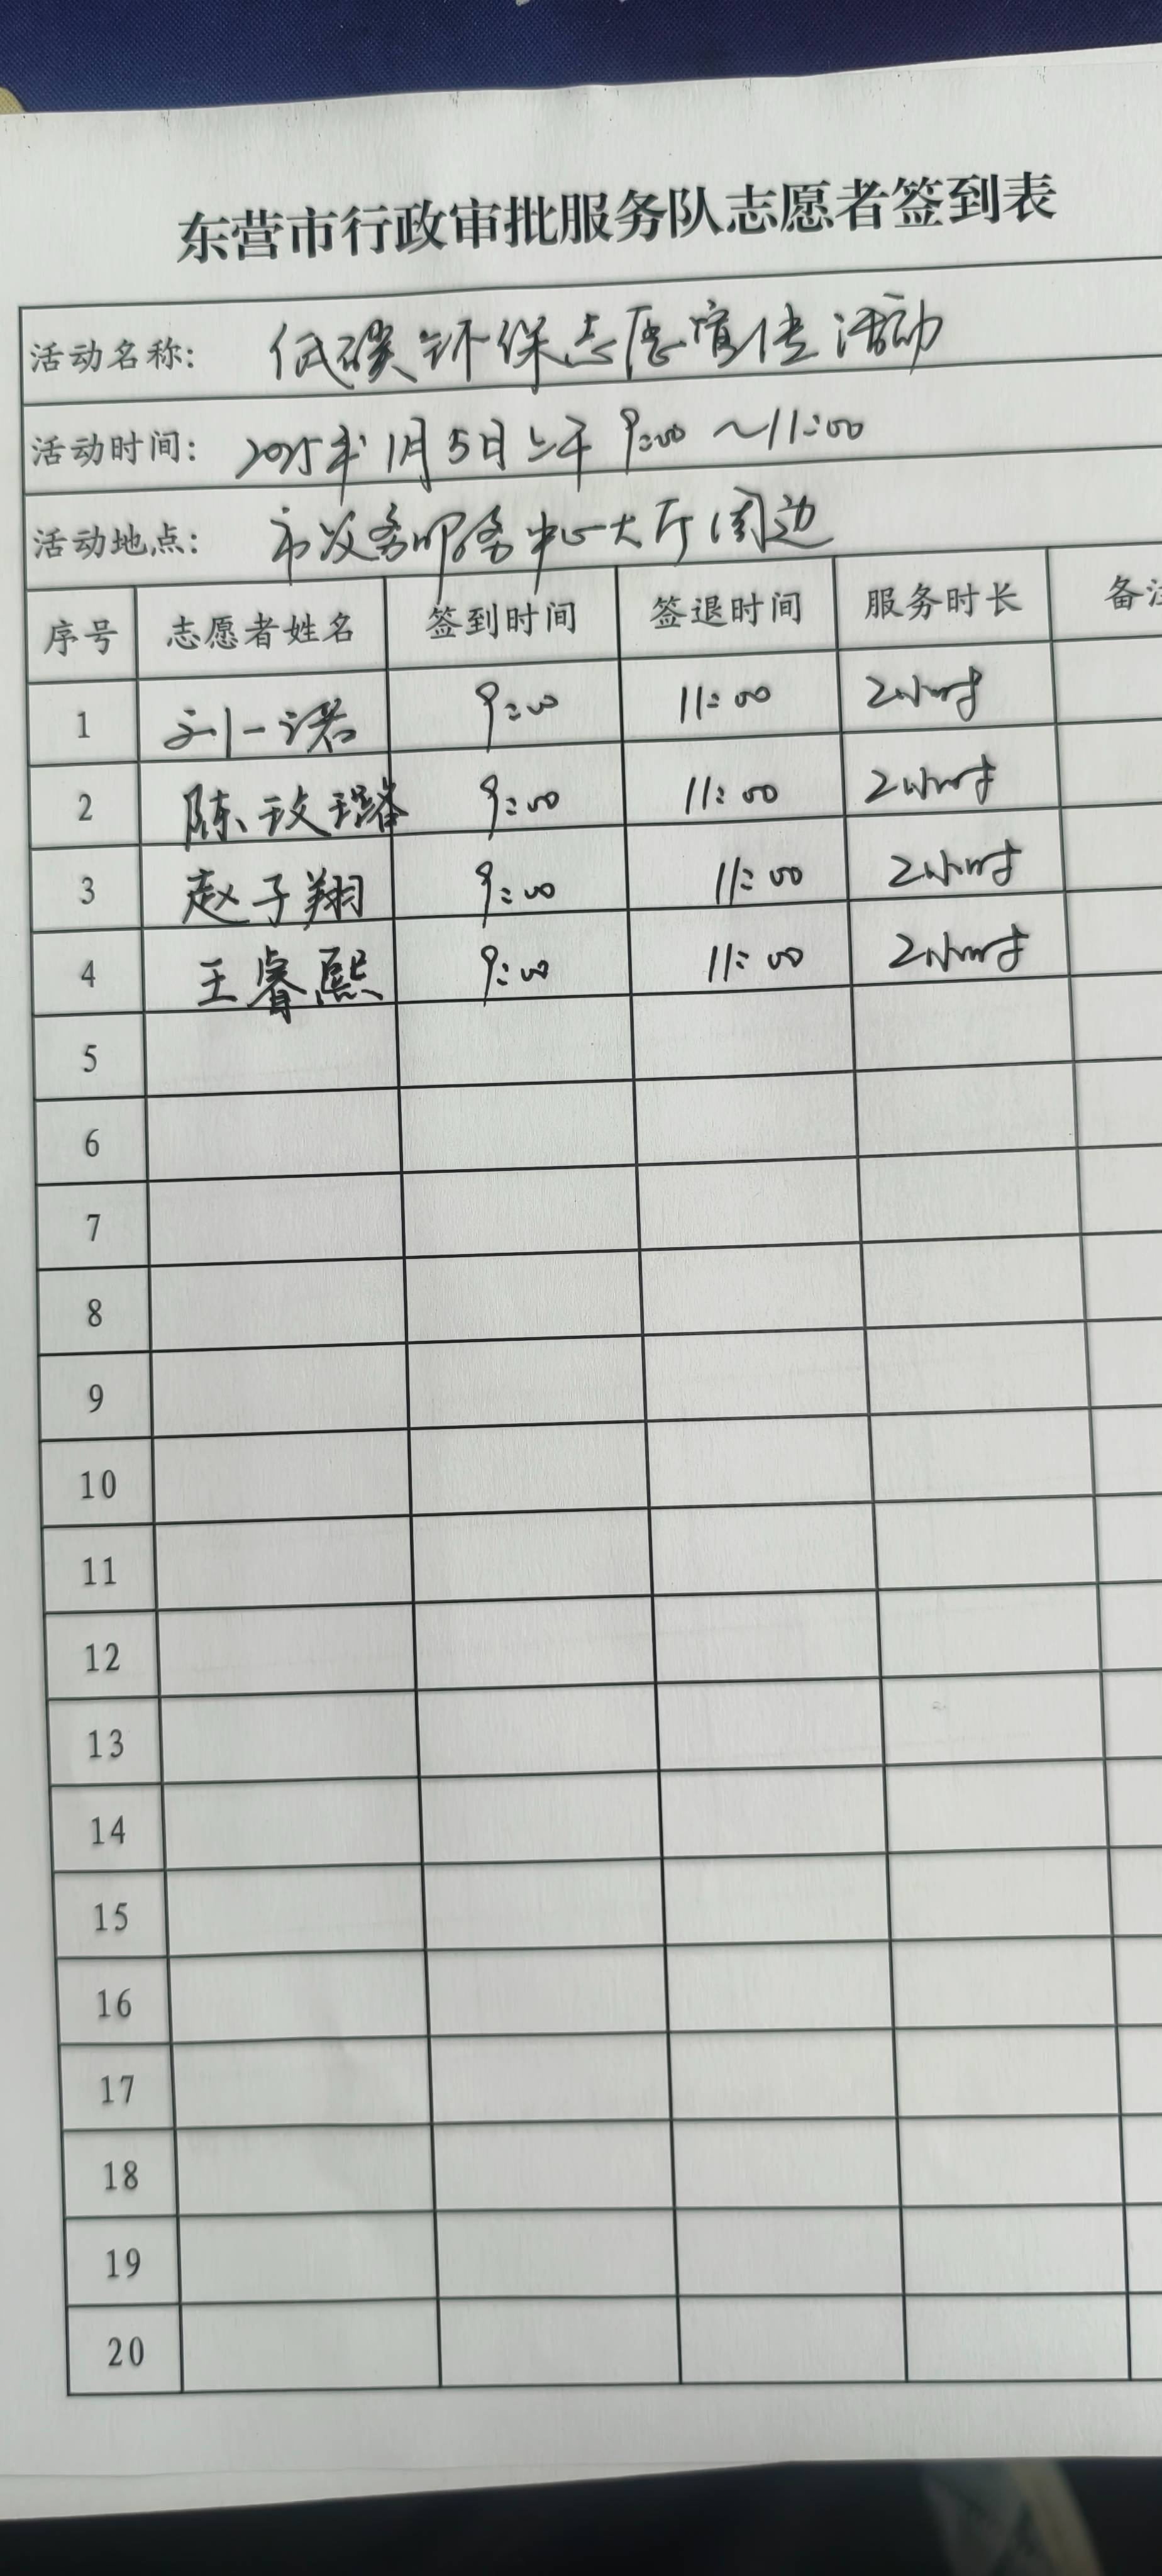 东营市行政审批服务队志愿者签到表
活动名称: 低碳环保志愿宣传活动
活动时间: 2025年1月5日上午 9:00～11:00
活动地点: 市政务服务中心大厅周边
序号 志愿者姓名 签到时间 签退时间 服务时长 备注
1 刘一诺 9:00 11:00 2小时
2 陈玟 9:00 11:00 2小时
3 赵子翔 9:00 11:00 2小时
4 王睿熙 9:00 11:00 2小时
5
6
7
8
9
10
11
12
13
14
15
16
17
18
19
20